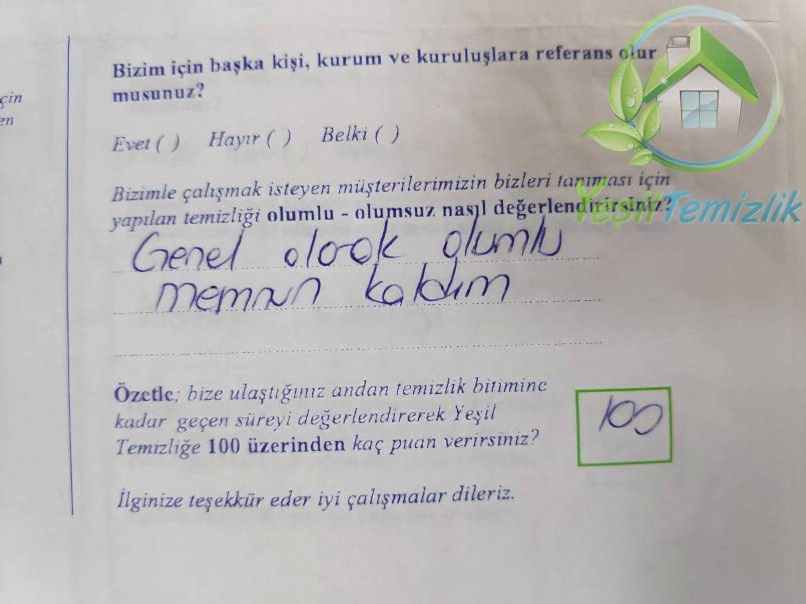 çin
en
Bizim için başka kişi, kurum ve kuruluşlara referans olur
musunuz?
Evet ( ) Hayır ( ) Belki ( )
Bizimle çalışmak isteyen müşterilerimizin bizleri tanıması için
yapılan temizliği olumlu - olumsuz nasıl değerlendirirsiniz?
Yeşil Temizlik
Genel olarak olumlu
memnun kaldım
Özetle; bize ulaştığınız andan temizlik bitimine
kadar geçen süreyi değerlendirerek Yeşil
Temizliğe 100 üzerinden kaç puan verirsiniz?
100
İlginize teşekkür eder iyi çalışmalar dileriz.